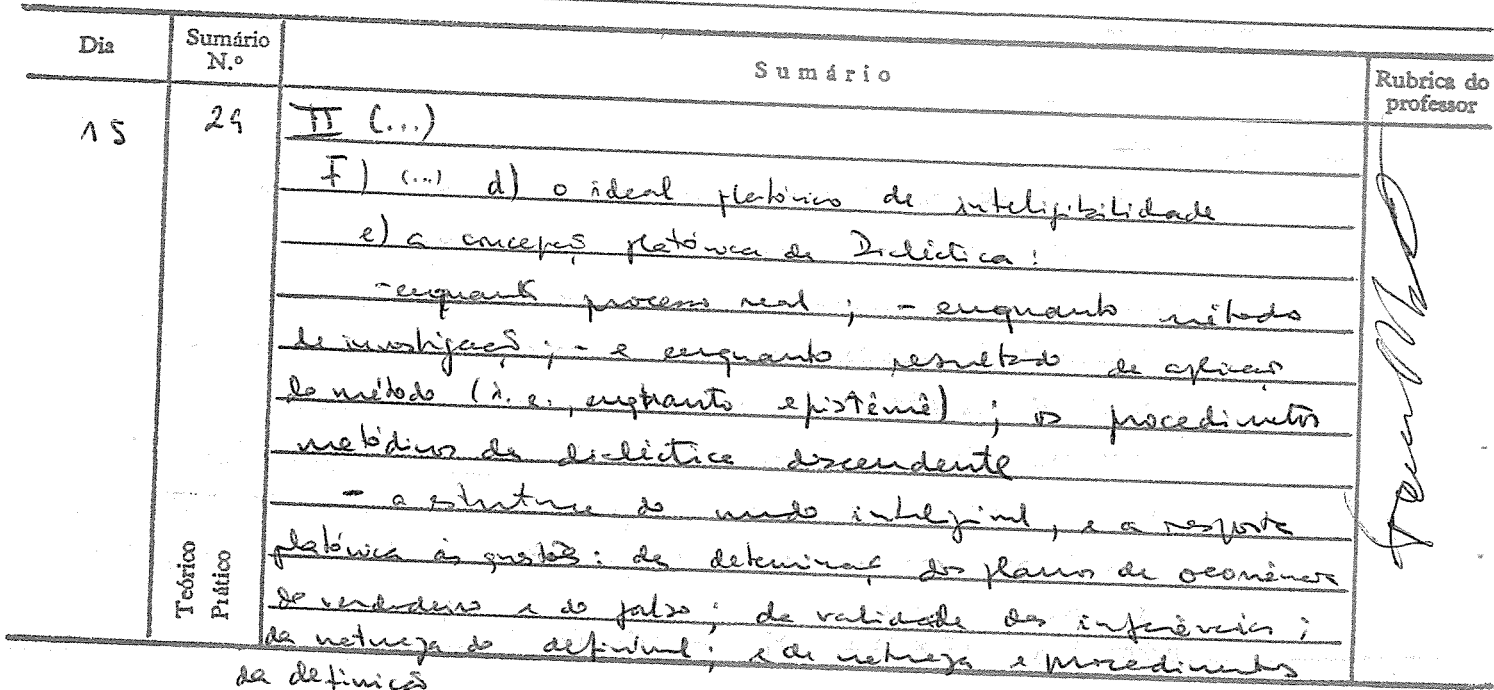 Dia
Sumário N.º
Sumário
Rubrica do professor
15
24
II (...)
F) (...) d) o ideal platónico de inteligibilidade
e) a concepção platónica da Dialéctica:
- enquanto processo real; - enquanto método
de investigação; - e enquanto resultado da aplicação
do método (i.e., enquanto epistêmê); os procedimentos
metódicos da dialéctica descendente
- a estrutura do mundo inteligível, e a resposta
platónica às questões: da determinação dos planos de ocorrência
do verdadeiro e do falso; da validade das inferências;
da natureza do definível; e da natureza e procedimentos
da definição
Teórico
Prático